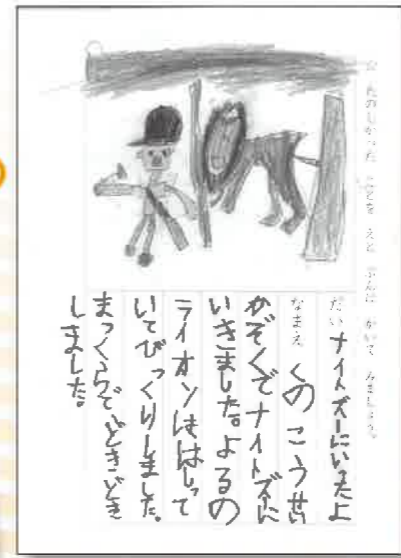 たのしかった ことを えと ぶんに かいて みましょう。
だい ナイトズーにいったよ
なまえ くの こうせい
かぞくでナイトズーに
いきました。よるの
ライオンははしって
いてびっくりしました。
まっくらでどきどき
しました。